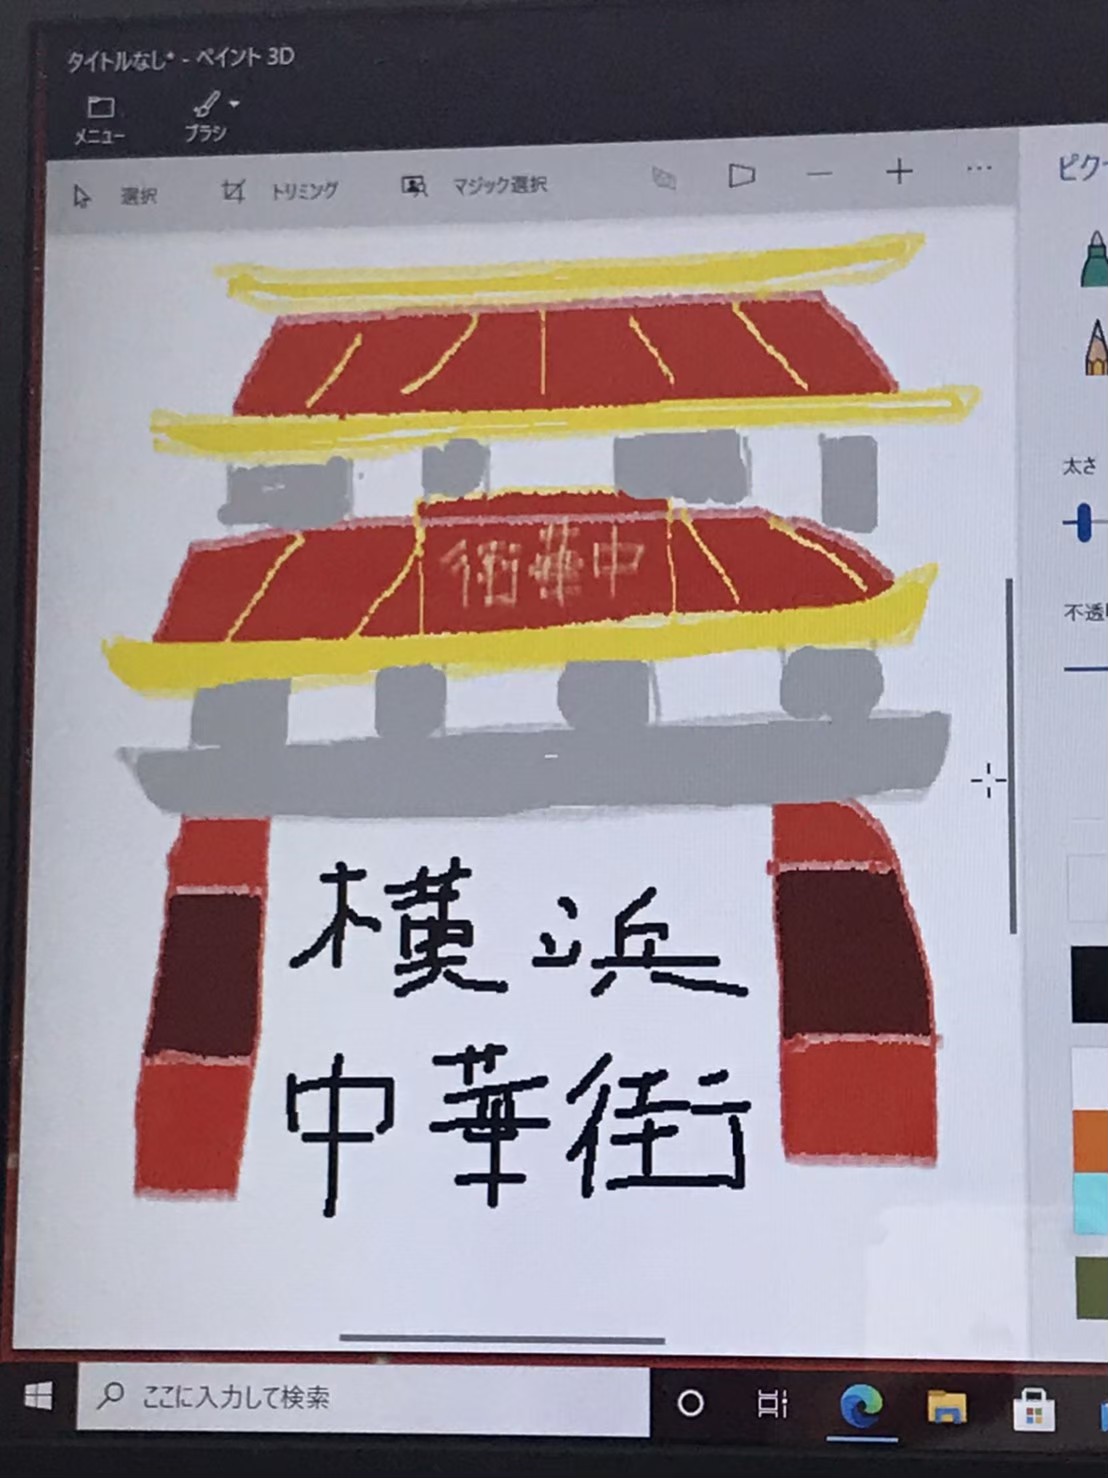 タイトルなし* - ペイント 3D
メニュー
ブラシ
選択
トリミング
マジック選択
太さ
街華中
横浜
中華街
ここに入力して検索